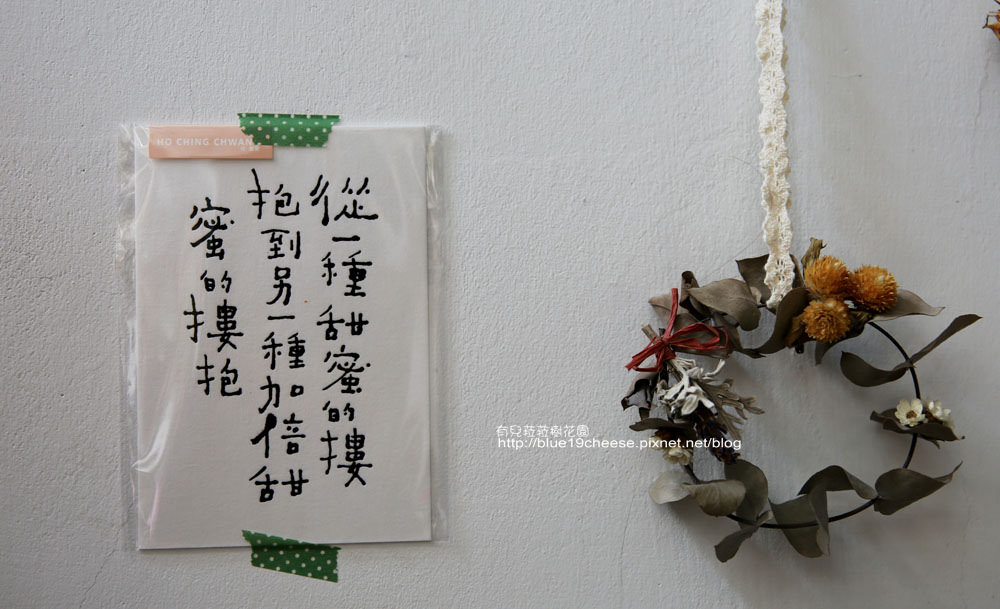 HO CHING CHWAN
從一種甜蜜的摟
抱到另一種加倍甜
蜜的摟抱
有兒菈菈樹花園
http://blue19cheese.pixnet.net/blog